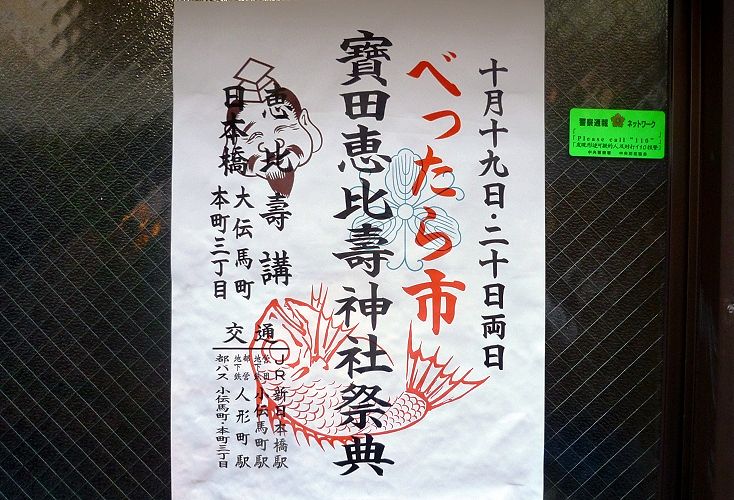 十月十九日・二十日両日
べったら市
寳田恵比壽神社祭典
恵比壽講
日本橋大伝馬町
本町三丁目
交通
JR新日本橋駅
営団地下鉄小伝馬町駅
都営地下鉄人形町駅
都バス小伝馬町・本町三丁目
警察通報ネットワーク
「Please call "110"」
中央警察署